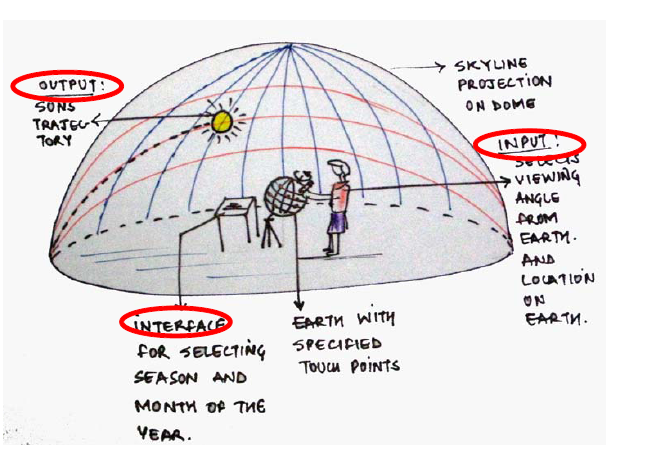 OUTPUT:
SONS
TRAJEC-
TORY
SKYLINE
PROJECTION
ON DOME
INPUT:
SELECTS
VIEWING
ANGLE
FROM
EARTH.
AND
LOCATION
ON
EARTH.
INTERFACE
FOR SELECTING
SEASON AND
MONTH OF THE
YEAR.
EARTH WITH
SPECIFIED
TOUCH POINTS